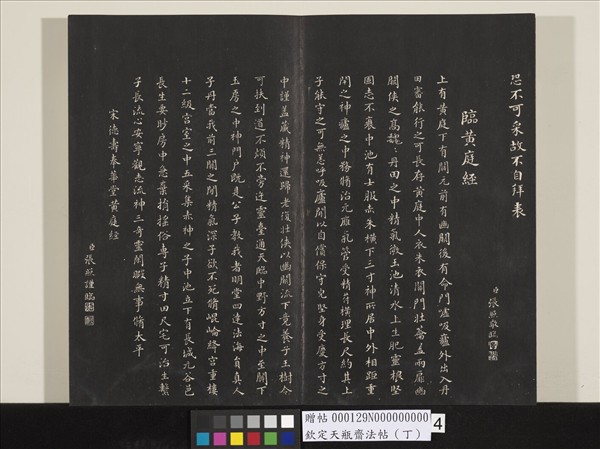 忍不可采故不自詳表
臣張照敬臨
臨黃庭經
上有黃庭下有關元前有幽關後有命門噓吸廬外出入丹
田審能行之可長存黃庭中人衣朱衣關門壯蘥蓋兩扉幽
關俠之高魏魏丹田之中精氣微玉池清水上生肥靈根堅
固志不衰中池有士服赤朱橫下三寸神所居中外相距重
閉之神廬之中務脩治玄廱氣管受精符橫理長尺約其上
子能守之可無恙呼吸廬間以自償保守完堅身受慶方寸之
中謹蓋藏精神還歸老復壯俠以幽闕流下竟養子玉樹令
可扶到道不煩不旁迕靈臺通天臨中野方寸之中至關下
玉房之中神門戶既是公子教我者明堂四達法海員真人
子丹當我前三關之間精氣深子欲不死脩崐崘絳宮重樓
十二級宮室之中五采集赤神之子中池立下有長城玄谷邑
長生要眇房中急棄捐搖俗專子精寸田尺宅可治生繫
子長流心安寧觀志流神三奇靈閑暇無事脩太平
宋德壽泰華堂黃庭經
臣張照謹臨
贈帖 000129N000000000
欽定天瓶齋法帖（丁）
4